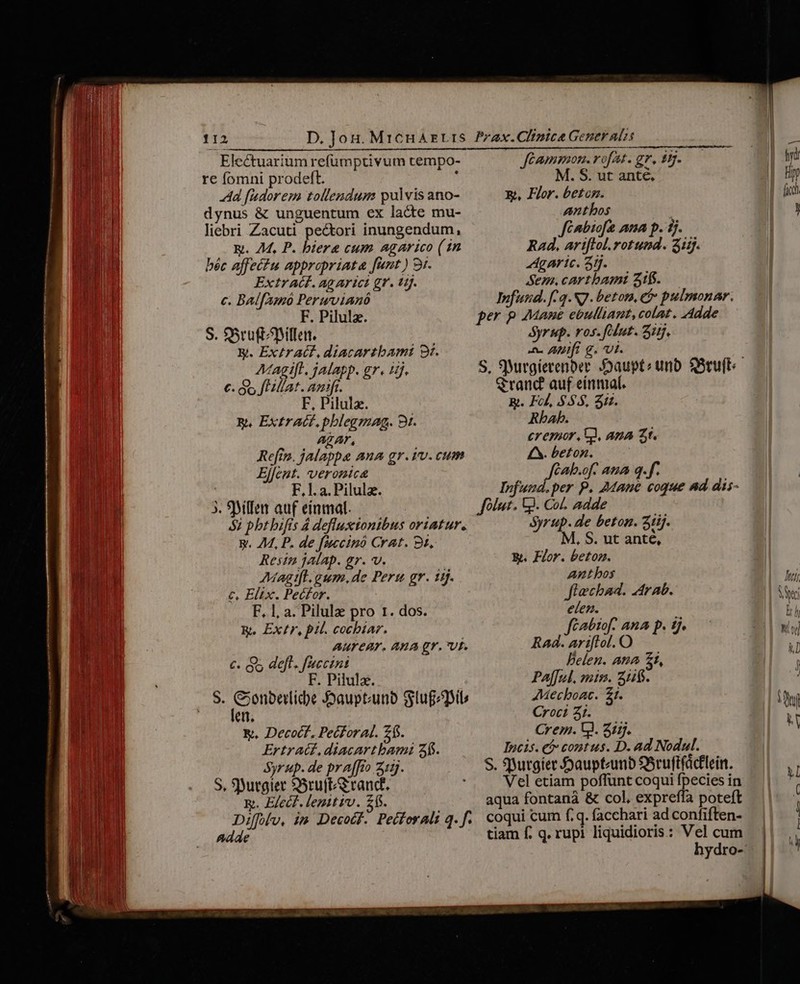 112 D. JOH. MICHAELIS Prax. Clinica Generalis
Electuarium resumptivum tempo-
re somni prodest.
Ad sudorem tollendum pulvis ano-
dynus & unguentum ex lacte mu-
liebri Zacuti pectori inungendum,
℞. M. P. hieræ cum agarico (in
hôc affectu appropriata sunt) ℈i.
Extract. agarici gr. iij.
c. Balsamô Peruvianô
F. Pilulæ.
S. Brust-Pillen.
℞. Extract. diacarthami ℈i.
Magist. jalapp. gr. iij.
c. stillat. anisi.
F. Pilulæ.
℞. Extract. phlegmag. ℈i.
agar.
Resin. jalappæ ana gr. iv. cum
Essent. veronicæ
F. l. a. Pilulæ.
3. Pillen auf einmal.
Si phthisis â defluxionibus oriatur,
℞. M. P. de succinô Crat. ℈i,
Resin jalap. gr. v.
Magist. gum. de Peru gr. iij.
c. Elix. Pector.
F. l. a. Pilulæ pro 1. dos.
℞. Extr. pil. cochiar.
aurear. ana gr. vi.
c. dest. succini
F. Pilulæ.
S. Sonderliche Haupt-und Fluß-Pil-
len.
℞. Decoct. Pectoral. ℥ß.
Extract. diacarthami ʒß.
Syrup. de prassio ʒiij.
S. Purgier Brust-Tranck.
℞. Elect. lenitiv. ℥ß.
Dissolv. in Decoct. Pectorali q. s.
adde
scammon. rosat. gr. iij.
M. S. ut ante.
℞. Flor. beton.
anthos
scabiosæ ana p. ij.
Rad. aristol. rotund. ʒiij.
Agaric. ʒij.
Sem. carthami ʒiß.
Infund. s. q. beton. & pulmonar.
per Mane ebulliant, colat. Adde
Syrup. ros. solut. ʒiij.
anisi g. vi.
S. Purgierender Haupt- und Brust-
Tranck auf einmal.
℞. Fol. SSS. ʒii.
Rhab.
cremor. ana ʒi.
beton.
scab. of. ana q. s.
Infund. per Mane coque ad dis-
solut. Col. adde
Syrup. de beton. ʒiij.
M. S. ut ante,
℞. Flor. beton.
anthos
stæchad. Arab.
elen.
scabios. ana p. ij.
Rad. aristol. O
helen. ana ʒi,
Passul. min. ʒiiß.
Mechoac. ʒi.
Croci ʒi.
Crem. ʒiij.
Incis. & contus. D. ad Nodul.
S. Purgier Haupt-und Brustsäcklein.
Vel etiam possunt coqui species in
aqua fontanâ & col. expressa potest
coqui cum s. q. sacchari ad consisten-
tiam s. q. rupi liquidioris: Vel cum
hydro-